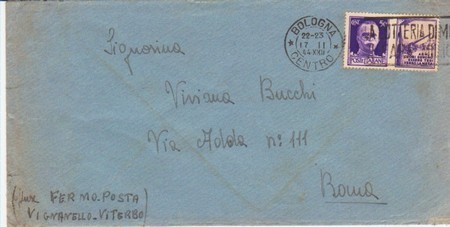 BOLOGNA
22-23
17 II
44 XXII
CENTRO
Signorina
Viviana Bucchi
Via Adda n° 111
Roma
FERMO.POSTA
VIGNANELLO-VITERBO)